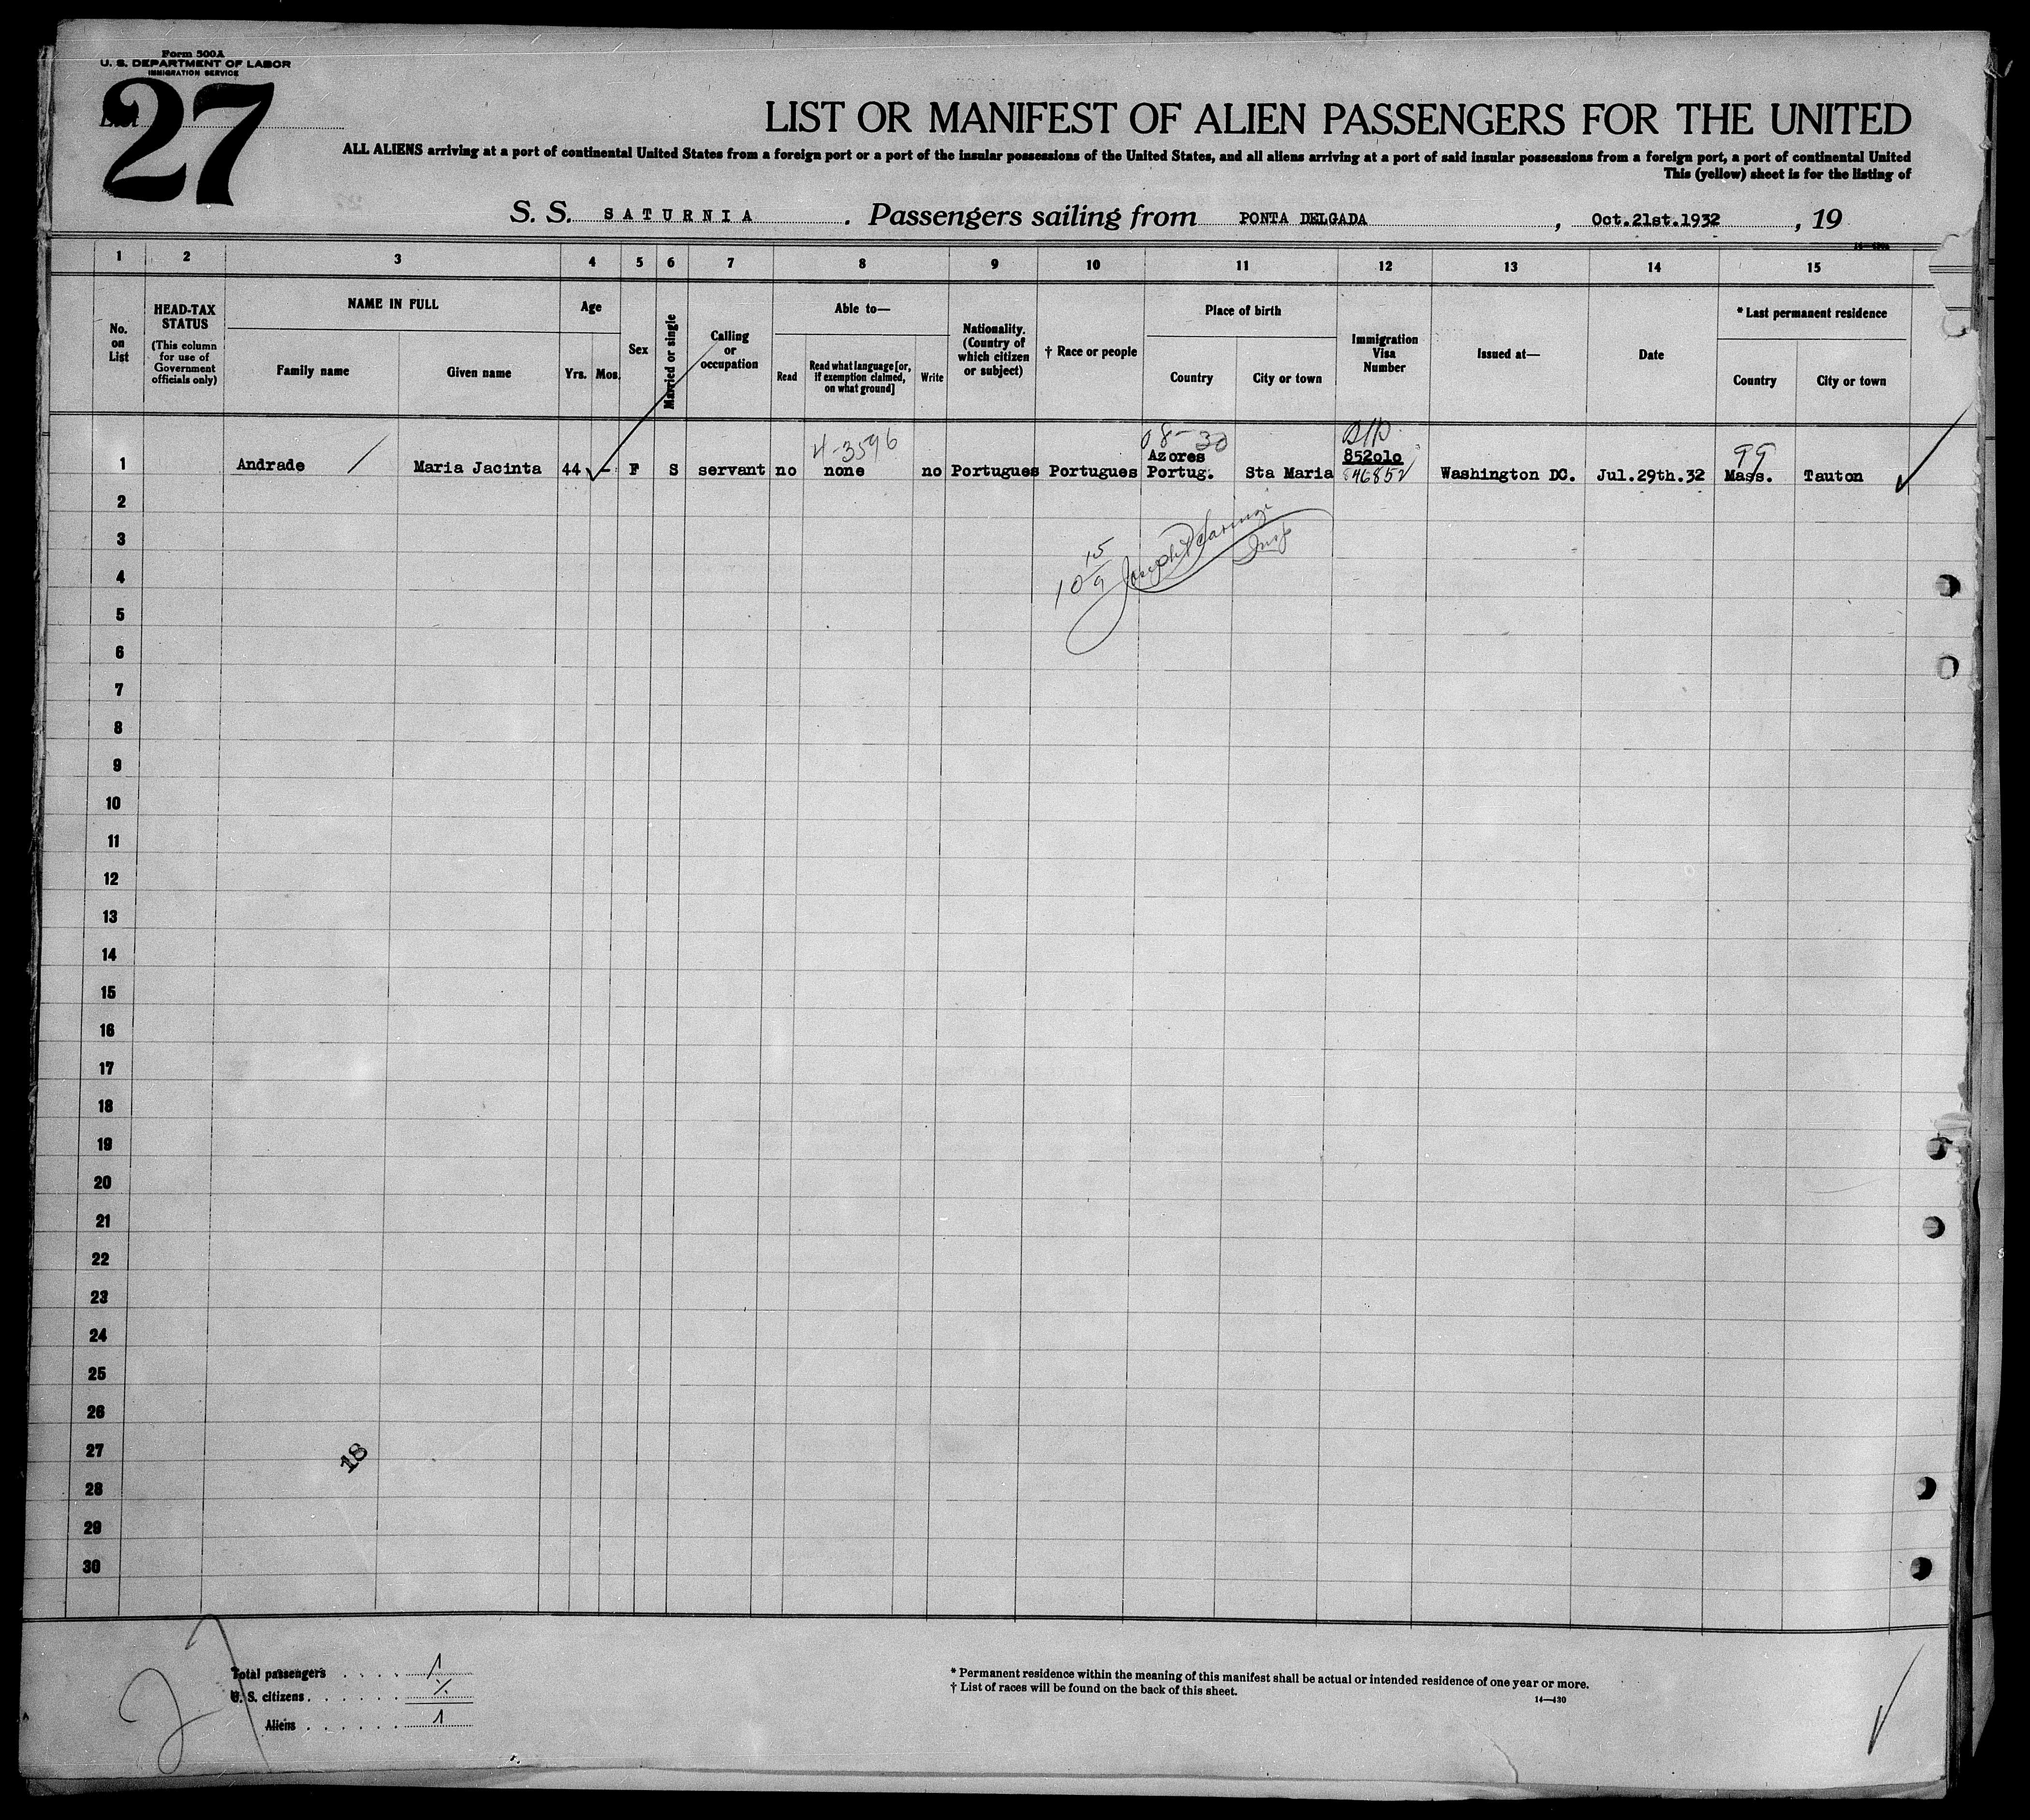 Form 500A
U. S. DEPARTMENT OF LABOR
IMMIGRATION SERVICE
List 27
LIST OR MANIFEST OF ALIEN PASSENGERS FOR THE UNITED
ALL ALIENS arriving at a port of continental United States from a foreign port or a port of the insular possessions of the United States, and all aliens arriving at a port of said insular possessions from a foreign port, a port of continental United
This (yellow) sheet is for the listing of
S. S. SATURNIA . Passengers sailing from PONTA DELGADA , Oct.21st.1932 , 19
1 2 3 4 5 6 7 8 9 10 11 12 13 14 15
No. on List
HEAD-TAX STATUS (This column for use of Government officials only)
NAME IN FULL
Family name
Given name
Age
Yrs.
Mos.
Sex
Married or single
Calling or occupation
Able to—
Read
Read what language [or, if exemption claimed, on what ground]
Write
Nationality. (Country of which citizen or subject)
† Race or people
Place of birth
Country
City or town
Immigration Visa Number
Issued at—
Date
* Last permanent residence
Country
City or town
4-3596 08-30 99
Azores 852010
1 Andrade Maria Jacinta 44 - F S servant no none no Portugues Portugues Portug. Sta Maria Washington DC. Jul.29th.32 Mass. Tauton
2
3
4
5
6
7
8
9
10
11
12
13
14
15
16
17
18
19
20
21
22
23
24
25
26
27
18
28
29
30
27
Total passengers . . . . 1
U. S. citizens . . . . . .
Aliens . . . . . . 1
* Permanent residence within the meaning of this manifest shall be actual or intended residence of one year or more.
† List of races will be found on the back of this sheet.
14—430